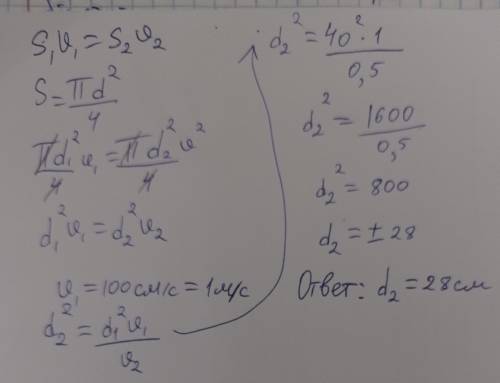 S₁υ₁ = S₂υ₂
S = πd²/4
πd₁²/4 υ₁ = πd₂²/4 υ²
d₁²υ₁ = d₂²υ₂
υ₁ = 100 см/с = 1 м/с
d₂² = d₁²υ₁/υ₂
d₂² = 40²·1/0,5
d₂² = 1600/0,5
d₂² = 800
d₂ = ± 28
Ответ: d₂ = 28 см